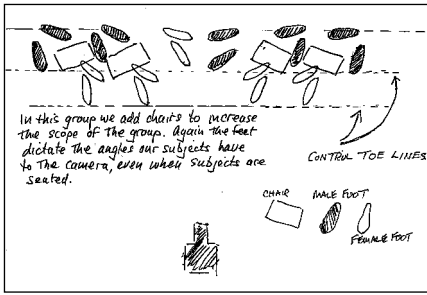 In this group we add chairs to increase
the scope of the group. Again the feet
dictate the angles our subjects have
to the camera, even when subjects are
seated.
CONTROL TOE LINES
CHAIR
MALE FOOT
FEMALE FOOT